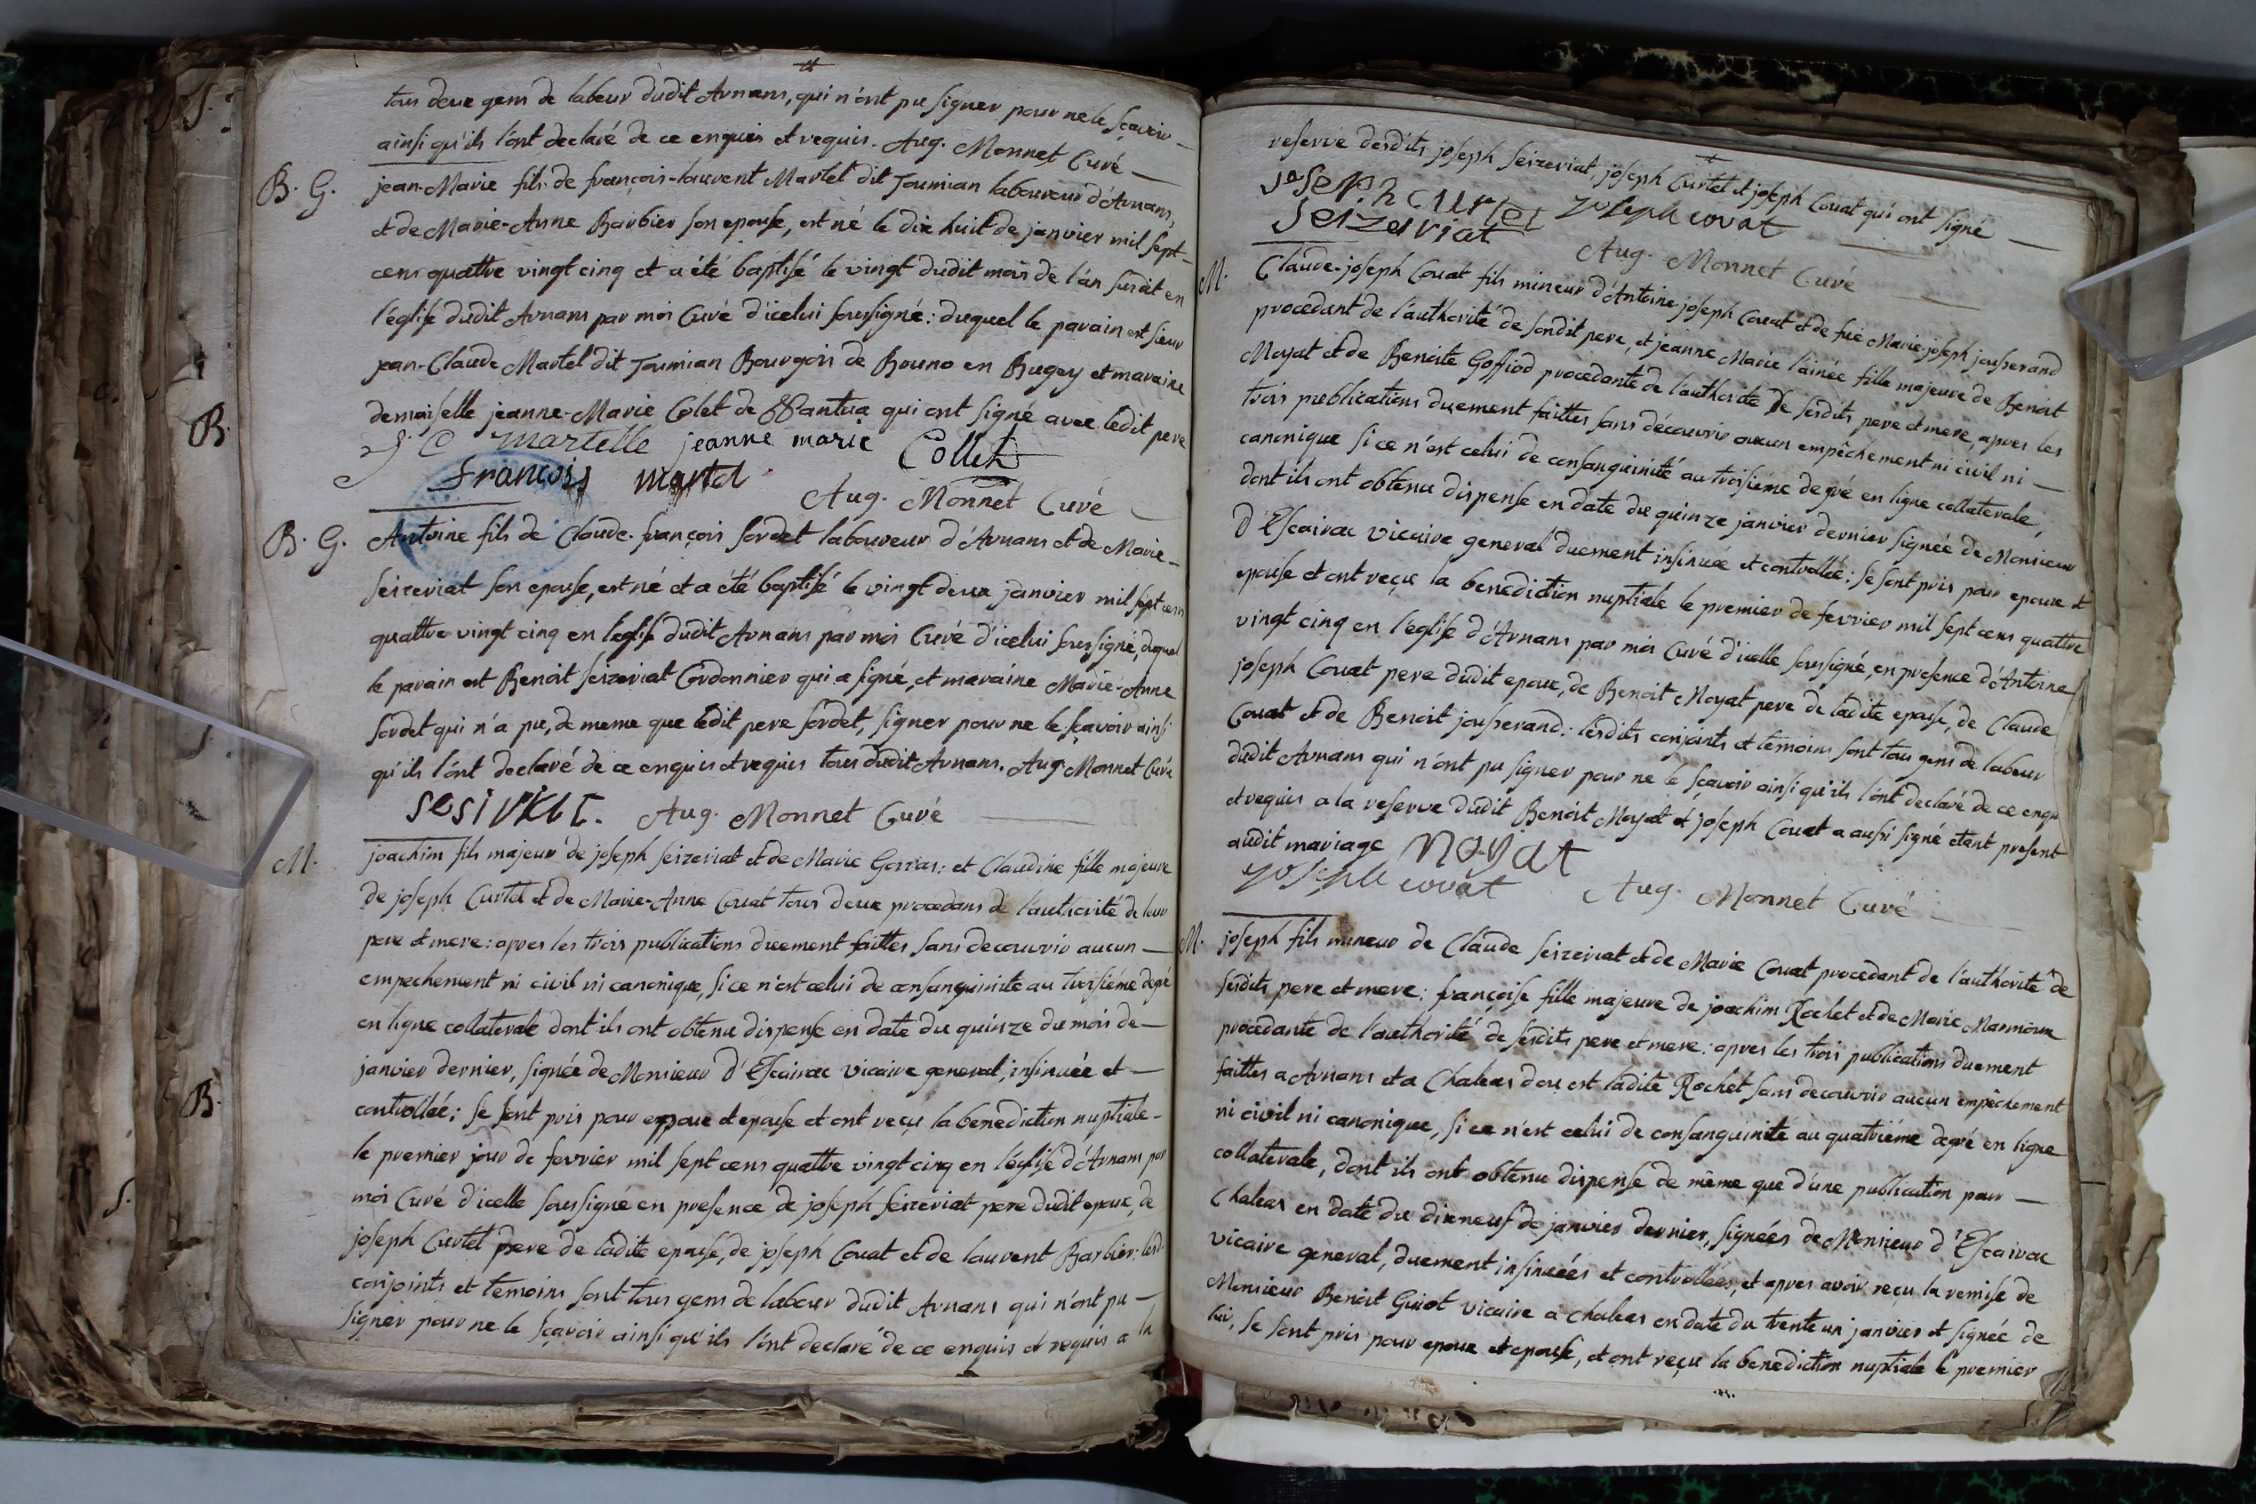 tous deux gens de labeur dudit Arnans, qui n'ont pu signer pour ne le sçavoir
ainsi qu'ils l'ont declaré de ce enquis et requis. Aug. Monnet Curé
B. G. jean-Marie fils de françois-laurent Martel dit Joumian laboureur d'Arnans,
et de Marie-Anne Barbier son epouse, est né le dix huit de janvier mil sept
cens quattre vingt cinq et a été baptisé le vingt dudit mois de l'an susdit en
l'église dudit Arnans par moi Curé d'icelui soussigné: duquel le parain est sieur
jean-Claude Martel dit Joumian Bourgois de Bouno en Bugey et maraine
demoiselle jeanne-Marie Colet de Nantua qui ont signé avec ledit pere
J C martelle jeanne marie Collet
francois martel
Aug. Monnet Curé
B. G. Antoine fils de Claude-françois sordet laboureur d'Arnans et de Marie
seizeriat son epouse, est né et a été baptisé le vingt deux janvier mil sept cens
quattre vingt cinq en l'eglise dudit Arnans par moi Curé d'icelui soussigné, duquel
le parain est Benoit seizeriat Cordonnier qui a signé, et maraine Marie-Anne
sordet qui n'a pu, de meme que ledit pere sordet, signer pour ne le sçavoir ainsi
qu'ils l'ont declaré de ce enquis et requis tous dudit Arnans. Aug. Monnet Curé
sesiriat. Aug. Monnet Curé
M. joachim fils majeur de joseph seizeriat et de Marie Gorras: et Claudine fille majeure
de joseph Curtet et de Marie-Anne Couat tous deux procedans de l'authorité de leur
pere et mere: apres les trois publications duement faittes sans decouvrir aucun
empechement ni civil ni canonique, si ce n'est celui de consanguinité au troisiéme degré
en ligne collaterale dont ils ont obtenu dispense en date du quinze du mois de
janvier dernier, signée de Monsieur D'Escairac vicaire general, insinuée et
controllée: se sont pris pour eppoux et epouse et ont reçu la benediction nuptiale
le premier jour de fevrier mil sept cens quattre vingt cinq en l'église d'Arnans par
moi Curé d'icelle soussigné en presence de joseph seizeriat pere dudit epoux, de
joseph Curtet pere de ladite epouse, de joseph Couat et de laurent Barbier: lesd.
conjoints et temoins sont tous gens de labeur dudit Arnans qui n'ont pu
signer pour ne le sçavoir ainsi qu'ils l'ont declaré de ce enquis et requis a la
reserve desdits joseph seizeriat, joseph Curtet et joseph Couat qui ont signé
joseph curtet joseph covat
seizeriat
Aug. Monnet Curé
M. Claude-joseph Couat fils mineur d'Antoine joseph Couat et de fue Marie-joseph jousserand
procedant de l'authorité de sondit pere, et jeanne Marie l'ainée fille majeure de Benoit
Moyat et de Benoite Goffiod procedante de l'authorité de sesdits pere et mere, apres les
trois publications duement faittes sans découvrir aucun empêchement ni civil ni
canonique si ce n'est celui de consanguinité au troisième degré en ligne collaterale,
dont ils ont obtenu dispense en date du quinze janvier dernier signée de Monsieur
D'Escairac vicaire general duement insinuée et controllée: se sont pris pour epoux et
epouse et ont reçu la benediction nuptiale le premier de fevrier mil sept cens quattre
vingt cinq en l'eglise d'Arnans par moi Curé d'icelle soussigné, en presence d'Antoine
joseph Couat pere dudit epoux, de Benoit Moyat pere de ladite epouse, de Claude
Couat et de Benoit jousserand: lesdits conjoints et temoins sont tous gens de labeur
dudit Arnans qui n'ont pu signer pour ne le sçavoir ainsi qu'ils l'ont declaré de ce enquis
et requis a la reserve dudit Benoit Moyat et joseph Couat a aussi signé etant present
audit mariage moyat
joseph covat Aug. Monnet Curé
M. joseph fils mineur de Claude seizeriat et de Marie Couat procedant de l'authorité de
sesdits pere et mere: françoise fille majeure de joachim Rochet et de Marie Marmoux
procedante de l'authorité de sesdits pere et mere: apres les trois publications duement
faittes a Arnans et a Chaleas d'ou est ladite Rochet sans decouvrir aucun empêchement
ni civil ni canonique, si ce n'est celui de consanguinité au quatriéme degré en ligne
collaterale, dont ils ont obtenu dispense de même que d'une publication pour
Chaleas en date du dixneuf de janvier dernier, signées de Monsieur d'Escairac
vicaire general, duement insinuées et controllées, et apres avoir reçu la remise de
Monsieur Benoit Guiot vicaire a chaleas en date du trente un janvier et signée de
lui, se sont pris pour epoux et epouse, et ont reçu la benediction nuptiale le premier